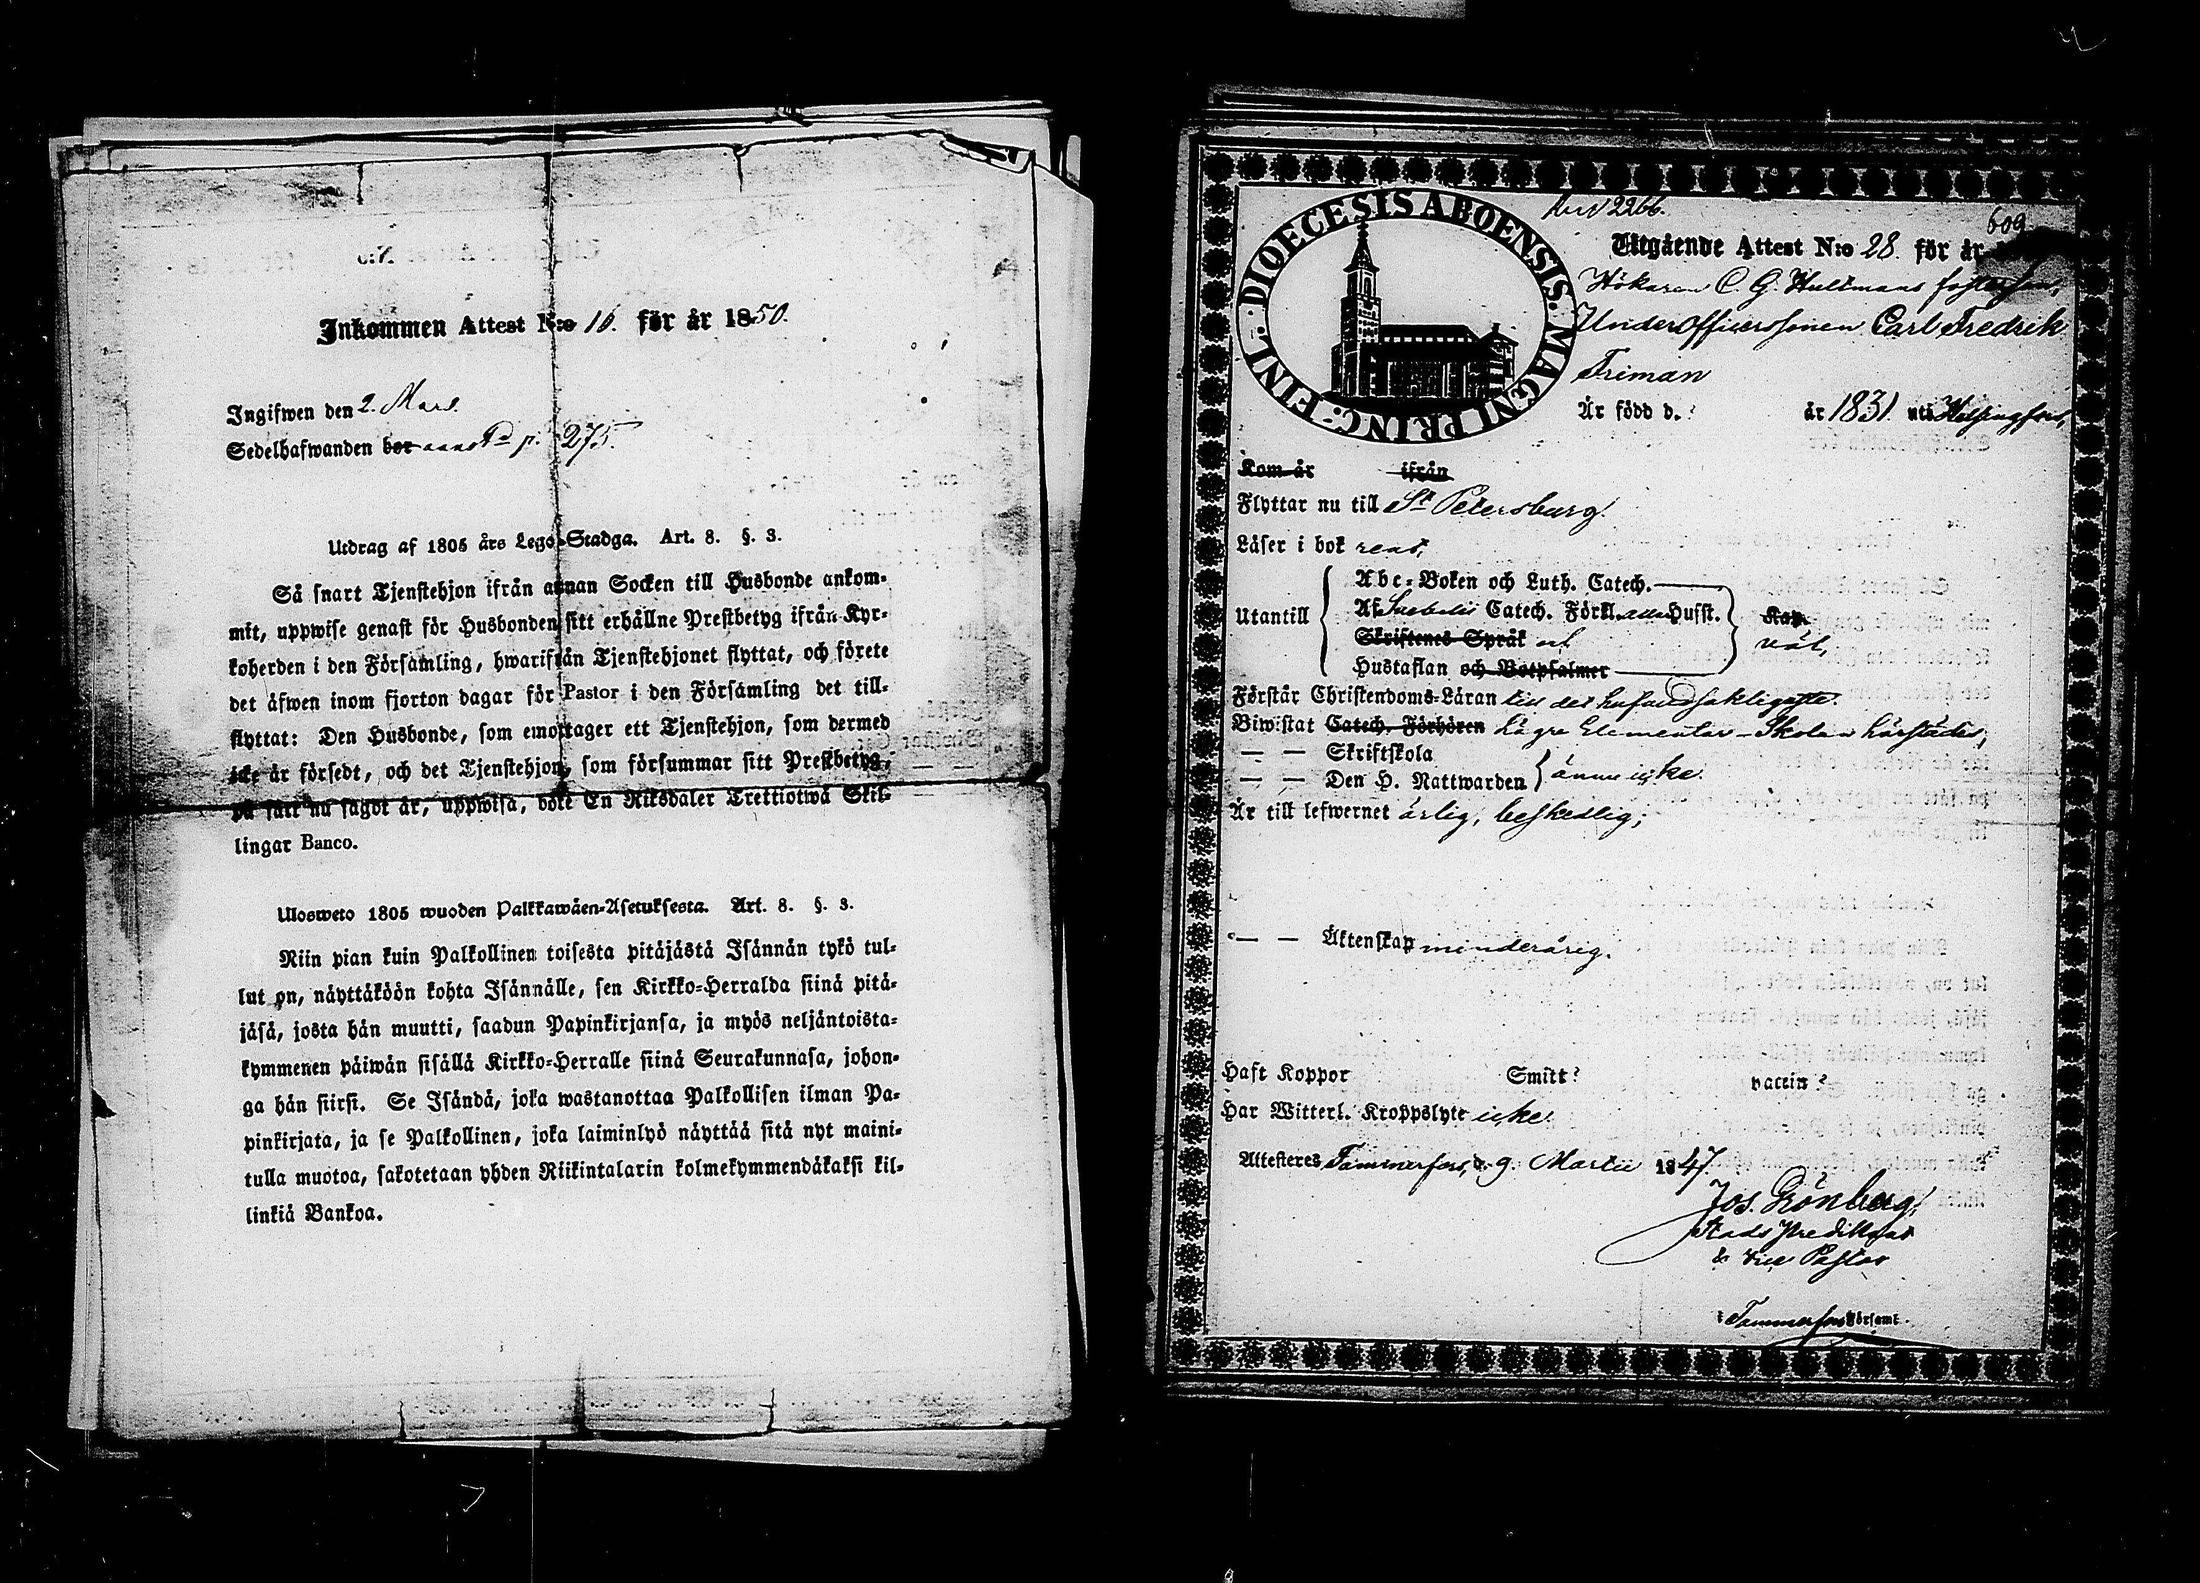 Inkommen Attest N:o 16. för år 1850.
Ingifwen den 2. Mars.
Sedelhafwanden bor p. 275.
Utdrag af 1805 års Lego-Stadga. Art. 8. §. 3.
Så snart Tjenstehjon ifrån annan Socken till Husbonde ankom-
mit, uppwise genast för Husbonden sitt erhållne Prestbetyg ifrån Kyr-
koherden i den Församling, hwarifrån Tjenstehjonet flyttat, och förete
det äfwen inom fjorton dagar för Pastor i den Församling det till-
flyttat: Den Husbonde, som emottager ett Tjenstehjon, som dermed
icke är försedt, och det Tjenstehjon, som försummar sitt Prestbetyg,
på sätt nu sagdt är, uppwisa, böte En Riksdaler Trettiotwå Skil-
lingar Banco.
Ulosweto 1805 wuoden Palkkawäen-Asetuksesta. Art. 8. §. 3.
Niin pian kuin Palkollinen toisesta pitäjästä Isännän tykö tul-
lut on, näyttäköön kohta Isännälle, sen Kirkko-Herralda siinä pitä-
jäsä, josta hän muutti, saadun Papinkirjansa, ja myös neljäntoista-
kymmenen päiwän sisällä Kirkko-Herralle siinä Seurakunnasa, johon-
ga hän siirsi. Se Isändä, joka wastanottaa Palkollisen ilman Pa-
pinkirjata, ja se Palkollinen, joka laiminlyö näyttää sitä nyt maini-
tulla muotoa, sakotetaan yhden Riikintalarin kolmekymmendäkaksi kil-
linkiä Bankoa.
DIOECESIS ABOENSIS. MAGNI PRINC: FINL.
2266.
609
Utgående Attest N:o 28. för år
Hökaren C. G. Hultmans fosterson,
Underofficerssonen Carl Fredrik
Friman
Är född d. ? år 1831. uti Helsingfors,
Kom år ifrån
Flyttar nu till St Petersburg.
Läser i bok rent,
Abc-Boken och Luth. Catech.
Utantill Af Svebelii Catech. Förkl. Hufst. Kap.
Skriftenes Språk och väl,
Hustaflan och Botpsalmer
Förstår Christendoms-Läran till det hufvudsakligaste.
Biwistat Catech. Förhören Lägre Elementar-Skolan härstädes,
— — Skriftskola
— — Den H. Nattwarden ännu icke.
Är till lefwernet ärlig, beskedlig;
— — Äktenskap minderårig.
Haft Koppor Smitt? vaccin?
Har Witterl. Kroppslyte icke.
Attesteres Tammerfors, d. 9. Martii 1847.
Jos. Grönberg,
Stads Predikant
& vice Pastor
i Tammerfors Församl.